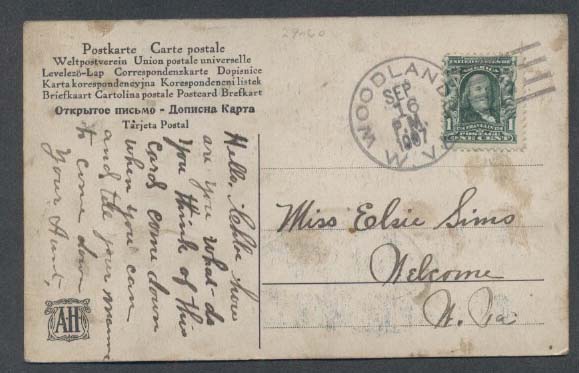 29-60
Postkarte Carte postale
Weltpostverein Union postale universelle
Levelező-Lap Correspondenzkarte Dopisnice
Karta korespondencyjna Korespondenční listek
Briefkaart Cartolina postale Postcard Brefkort
Открытое письмо - Дописна Карта
Tarjeta Postal
WOODLAND
SEP
16
P.M.
1907
W.VA
FRANKLIN
POSTAGE
1 1
ONE CENT
Hello, how
are you what do
you think of this
card come down
when you can
and the your mama
to come down
Your Aunt,
Miss Elsie Sims
Welcome
W. Va
AH